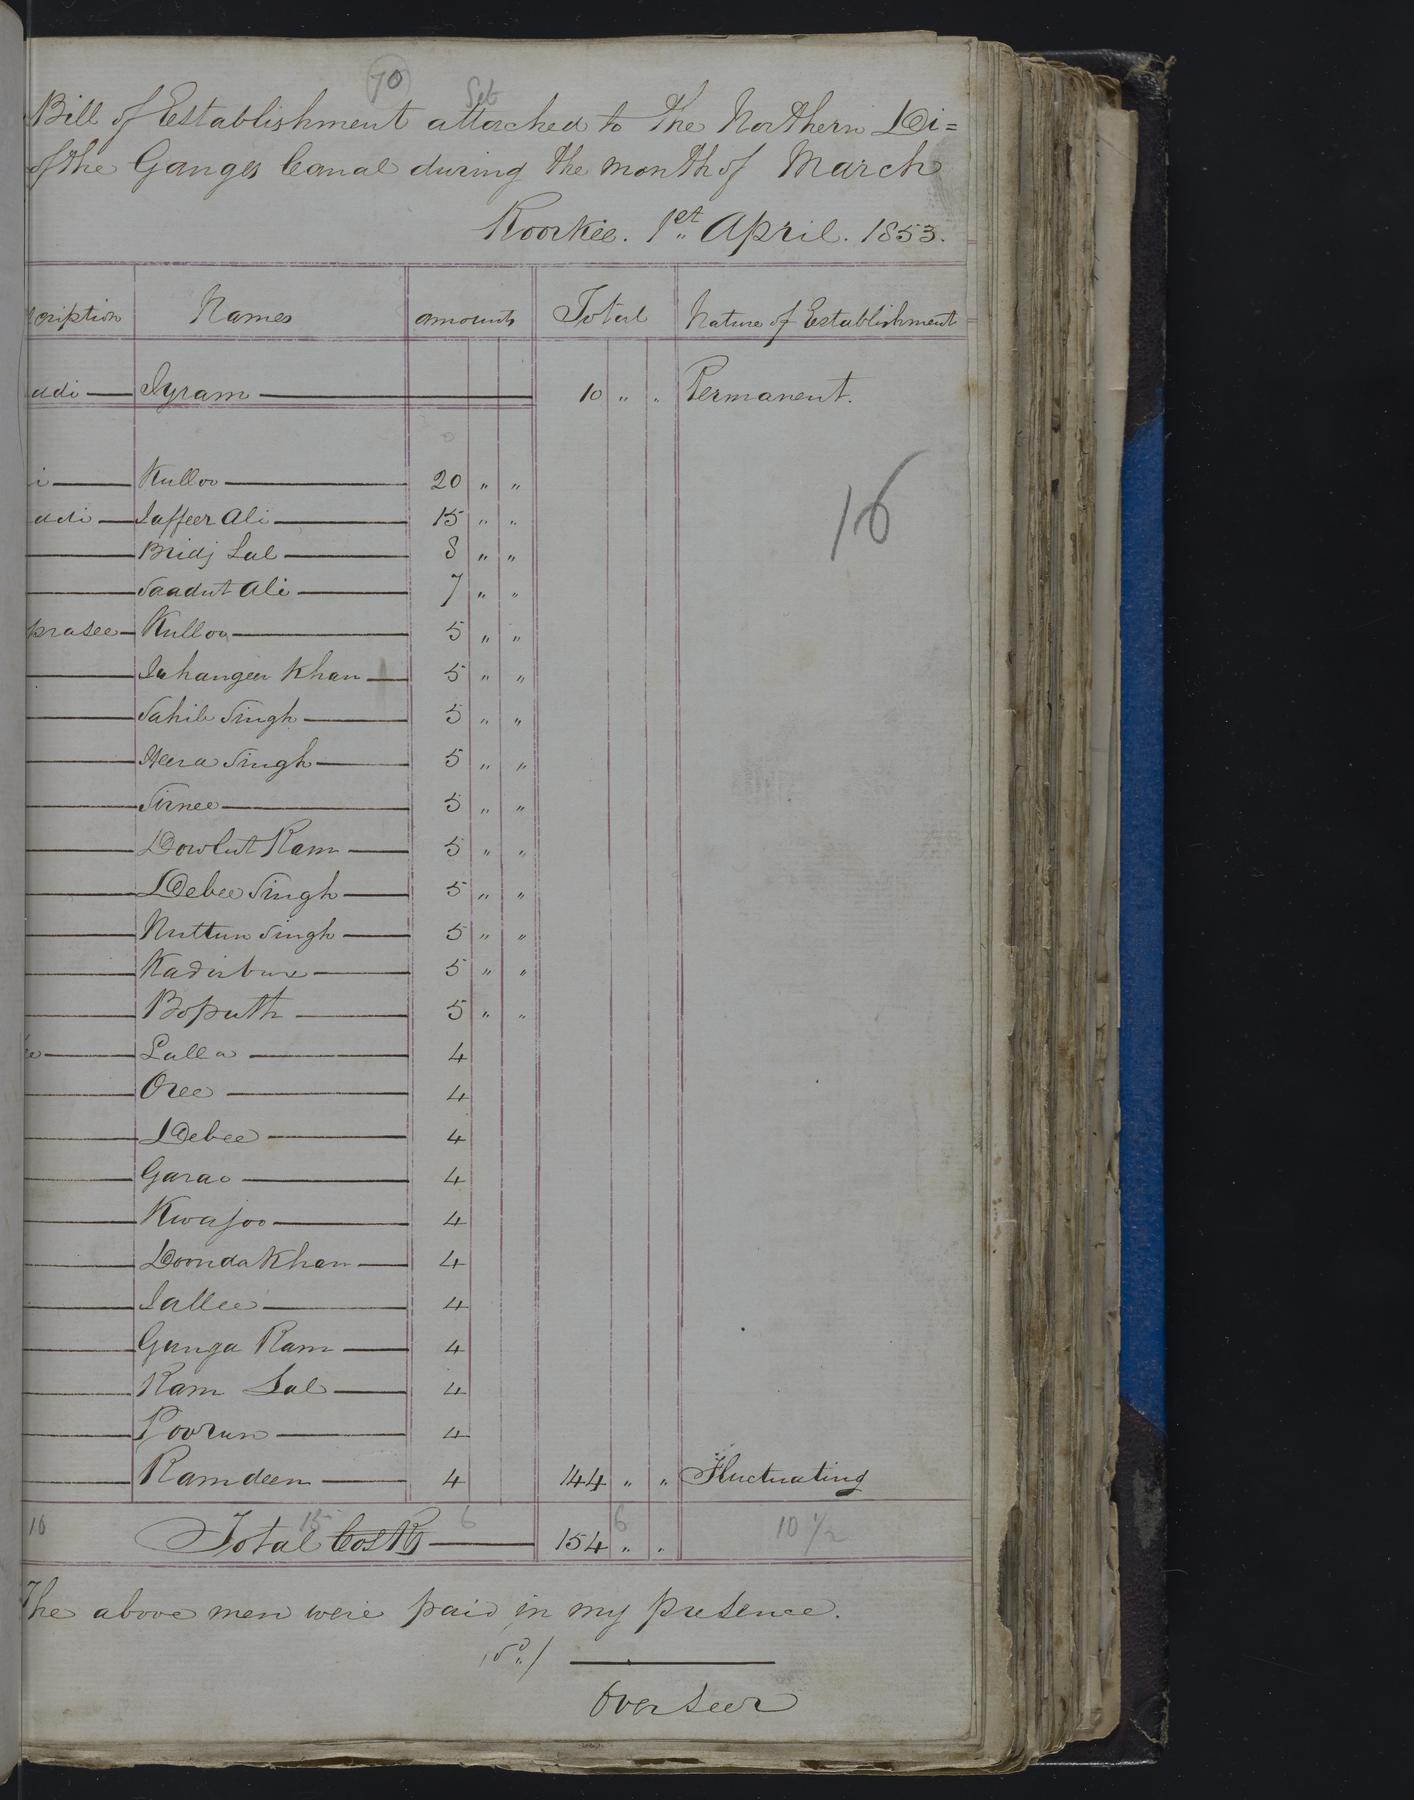 70
Bill of Establishment attached to the Northern Di=
of the Ganges Canal during the month of March
Roorkee. 1st April. 1853.
cription Names amounts Total Nature of Establishment
addi Syram 10 " " Permanent.
16
i Kulloo 20 " "
addi Jaffeer Ali 15 " "
Bridj Lal 8 " "
Saadut Ali 7 " "
prasee Kulloo 5 " "
Jahangeer Khan 5 " "
Sahib Singh 5 " "
Heera Singh 5 " "
Sirnee 5 " "
Dowlut Ram 5 " "
Debee Singh 5 " "
Nuttun Singh 5 " "
Kadirbux 5 " "
Boputh 5 " "
Lalla 4
Oree 4
Debee 4
Garao 4
Kwajoo 4
Doonda Khan 4
Jallee 4
Gunga Ram 4
Ram Lal 4
Poorun 4
Ramdeen 4 144 " " Fluctuating
16 Total Co's Rs 15 6 154 " " 6 10 1/2
The above men were paid in my presence.
Overseer